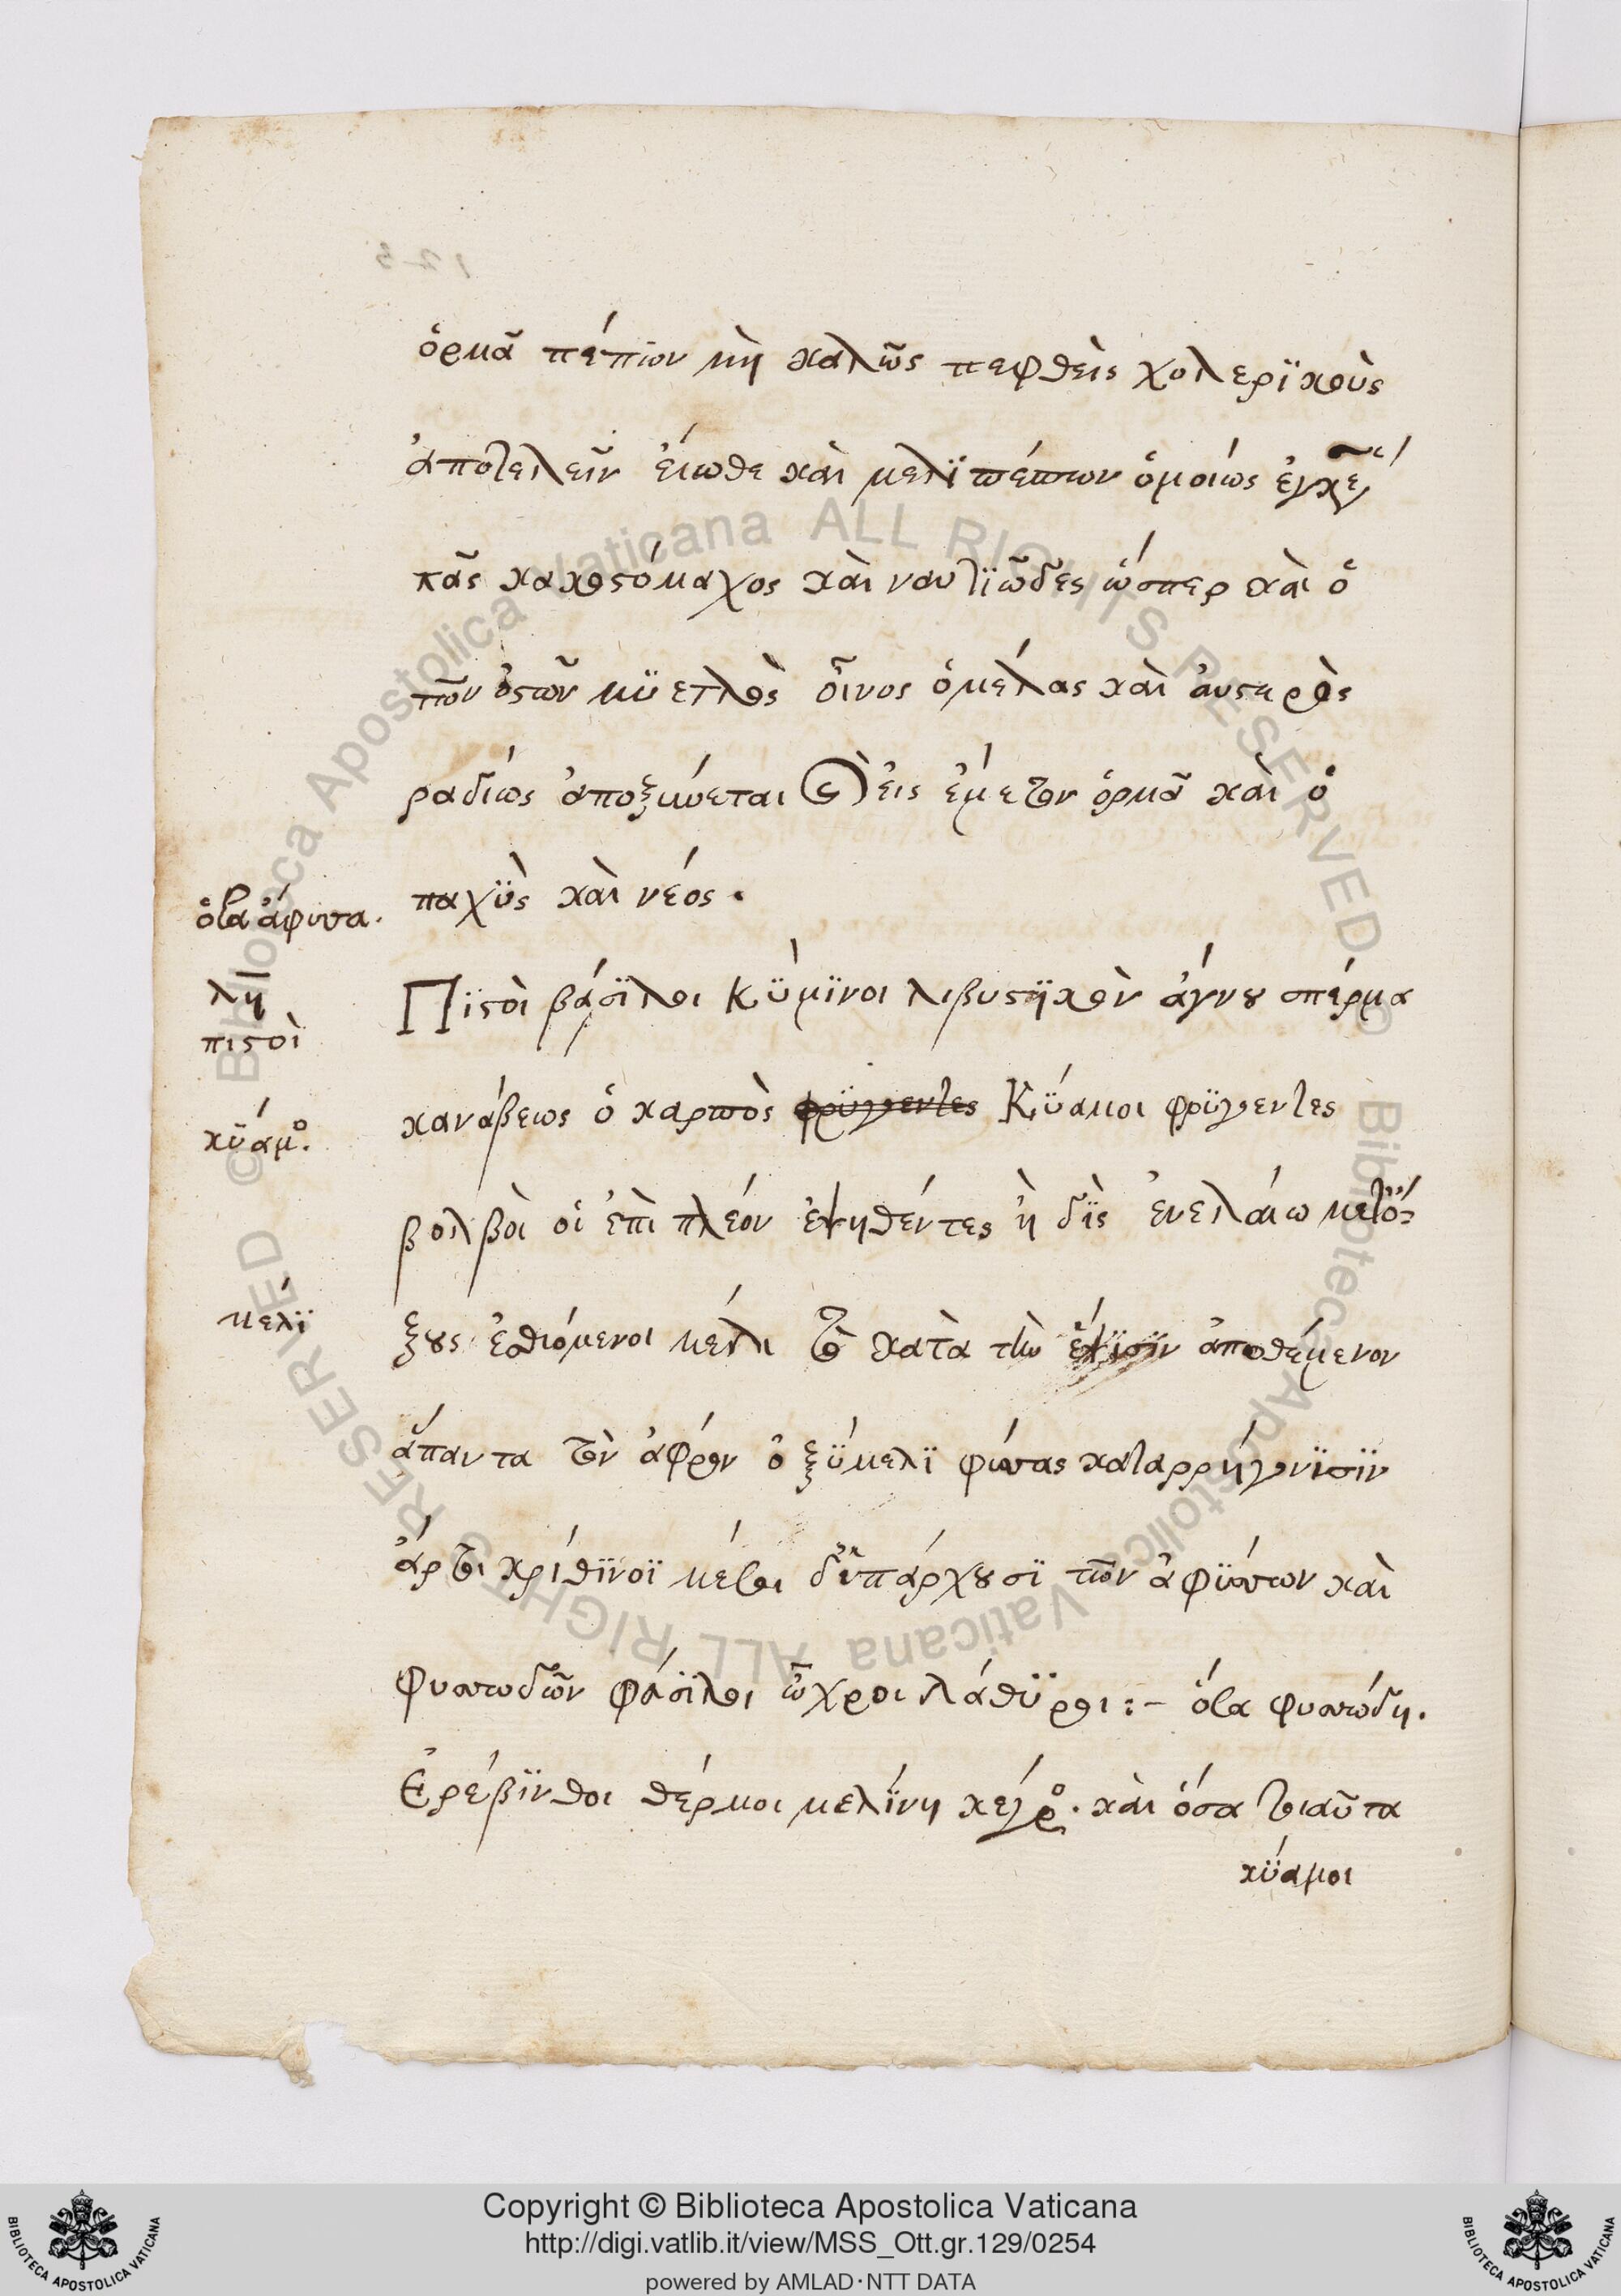 ὁρμᾶ πέπων μὴ καλῶς πεφθεὶς χολερϊκοὺς
ἀποτελεῖν ἐίωθε καὶ μελϊπέπων ὁμοίως
πᾶς κακοστόμαχος καὶ ναυτϊῶδες ὥσπερ καὶ ὁ
τῶν ὀστῶν μϋετλὸς οἶνος ὁ μέλας καὶ ἀυστηρὸς
ραδίως ἀποξυώεται καὶ ἐις ἐμετον ὁρμᾶ καὶ ὁ
παχϋς καὶ νέος.
ὅσα ἄφυσα.
Πϊστοὶ βάσϊλοι Κϋμϊνοι λιβυστϊκὸν ἄγνου σπέρμα
λη
πιστοὶ
κανάβεως ὁ καρπὸς φρϋγεντες Κϋάμοι φρϋγεντες
κϋάμο.
βολβοὶ οἱ ἐπι πλέον ἑψηθέντες ἢ δϊς ἐνελαίω μετό-
ξους ἐσθιόμενοι μέλι τὸ κατὰ τὴν ἕψϊσϊν ἀποθέμενον
μελϊ
ἅπαντα τὸν ἀφρον ὀξϋμελϊ φύσας καταρρήγνϊσϊν
ἄρτοι κρίθϊνοϊ μέσοι δ' ὑπάρχουσϊ τῶν ἀφϋσων καὶ
φυσωδῶν φάσϊλοι ὦχροι λάθϋροι :- ὅσα φυσώδη.
Ἐρέβϊνθοι θέρμοι μελίνη κέγχρο. καὶ ὅσα τοιαῦτα
κϋαμοι
Copyright © Biblioteca Apostolica Vaticana
http://digi.vatlib.it/view/MSS_Ott.gr.129/0254
powered by AMLAD·NTT DATA
BIBLIOTECA APOSTOLICA VATICANA
BIBLIOTECA APOSTOLICA VATICANA
© Biblioteca Apostolica Vaticana ALL RIGHTS RESERVED
© Biblioteca Apostolica Vaticana ALL RIGHTS RESERVED